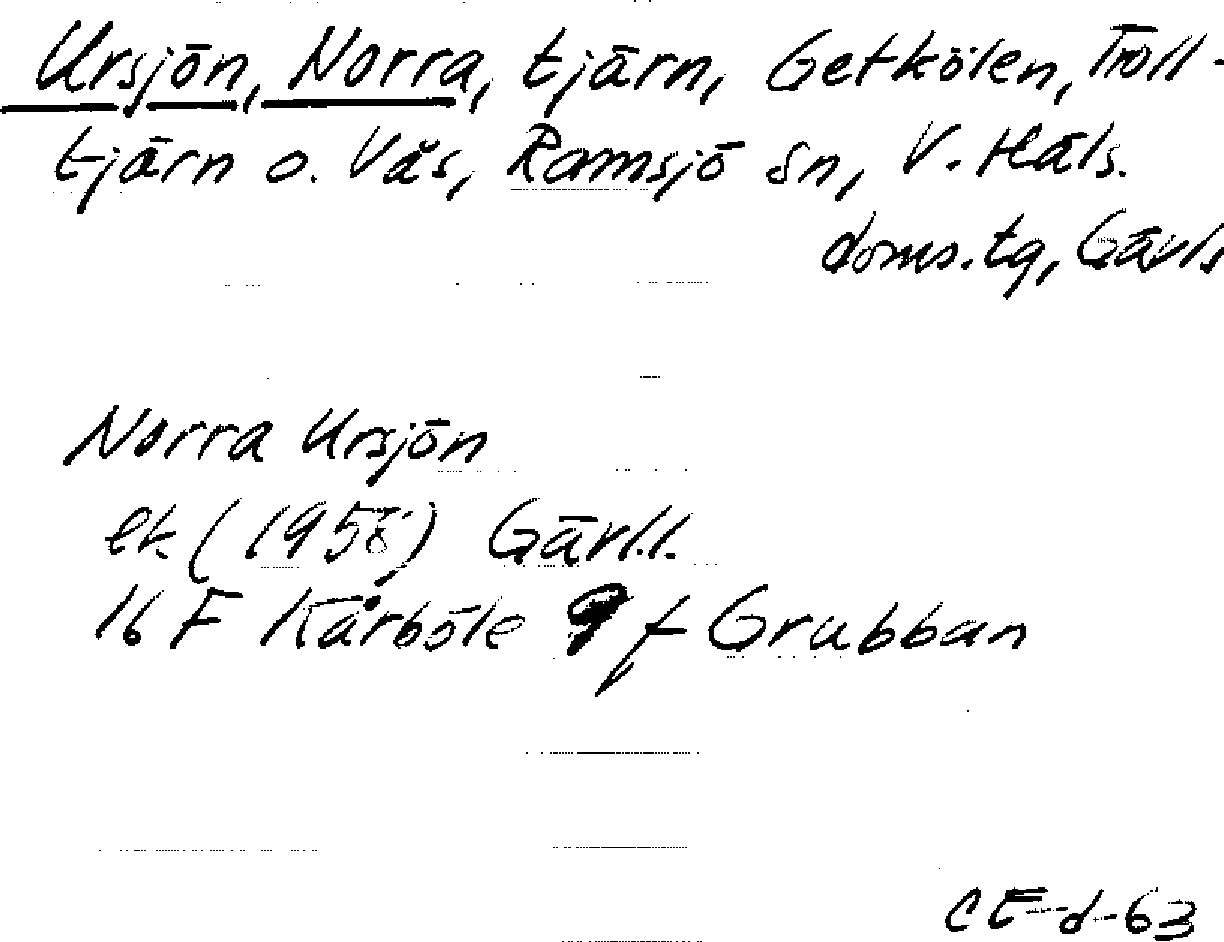 Ursjön, Norra, tjärn, Getkölen, Troll-
tjärn o. Vås, Ramsjö sn, V. Häls.
doms.tg, Gävls
Norra Ursjön
ek (1958) Gävl.l.
16 F Kårböle 9 f Grubban
CE-d-63